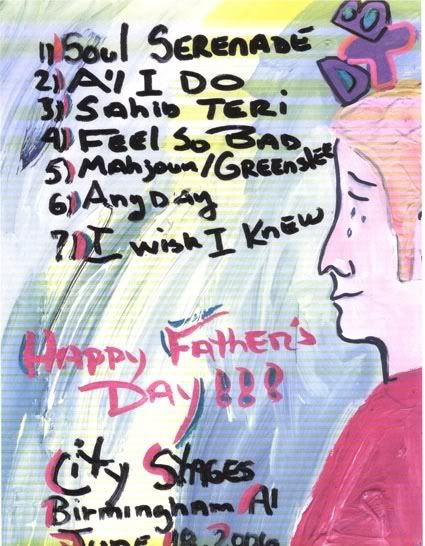 DTB
1) Soul SERENADE
2) A'll I DO
3) Sahib TERi
4) FEEL So BAD
5) Mahjoun/GREENSLEE
6) AnyDAY
7) I wish I KNEW
HAPPY FATHER'S
DAY!!!
City STAGES
Birmingham Al
JUNE 18, 2006